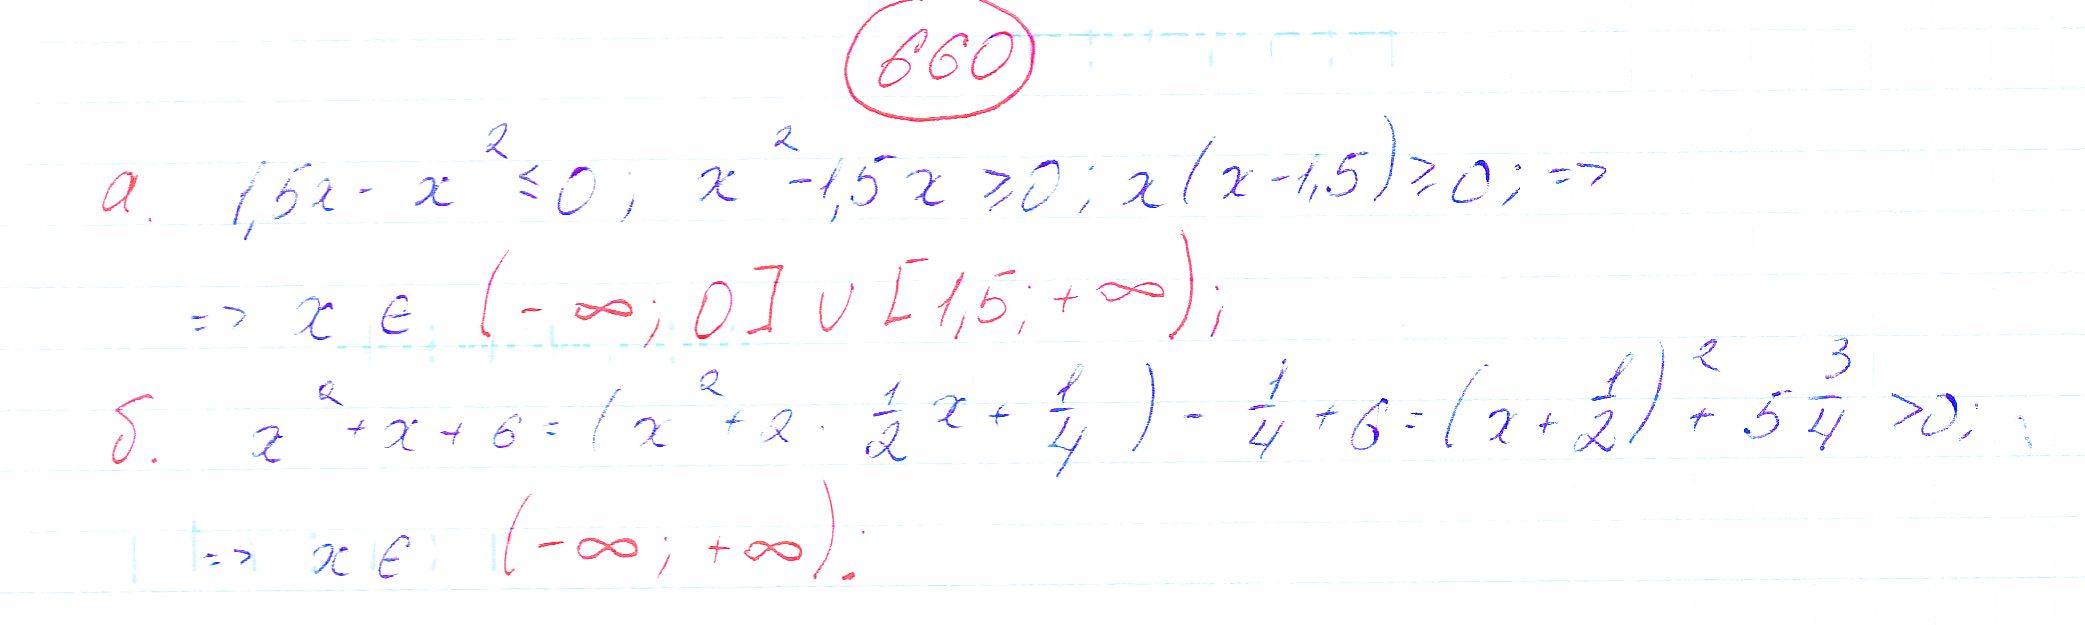 660
а. 1,5x - x² ≤ 0; x² - 1,5x ≥ 0; x(x - 1,5) ≥ 0; =>
=> x ∈ (-∞; 0] ∪ [1,5; +∞);
б. x² + x + 6 = (x² + 2 · 1/2 x + 1/4) - 1/4 + 6 = (x + 1/2)² + 5 3/4 > 0;
=> x ∈ (-∞; +∞).